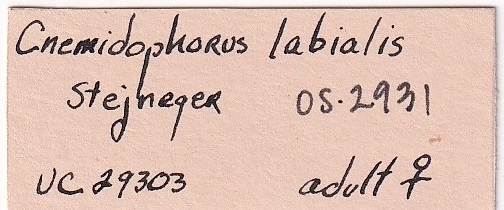 Cnemidophorus labialis
Stejneger OS.2931
UC 29303 adult ♀